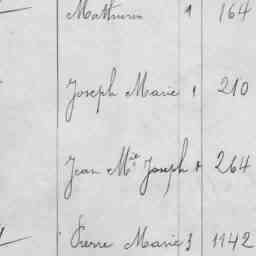 Mathurin 1 164
Joseph Marie 1 210
Jean Mie Joseph 264
Pierre Marie 3 1142